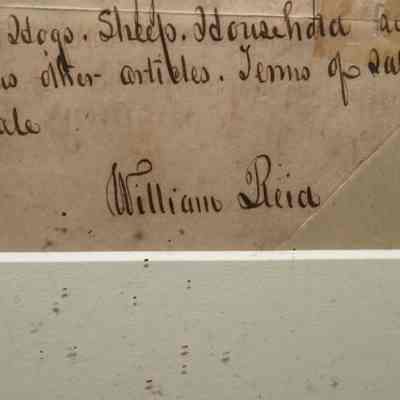 Hogs. Sheep. Household
other articles. Terms of
William Reid